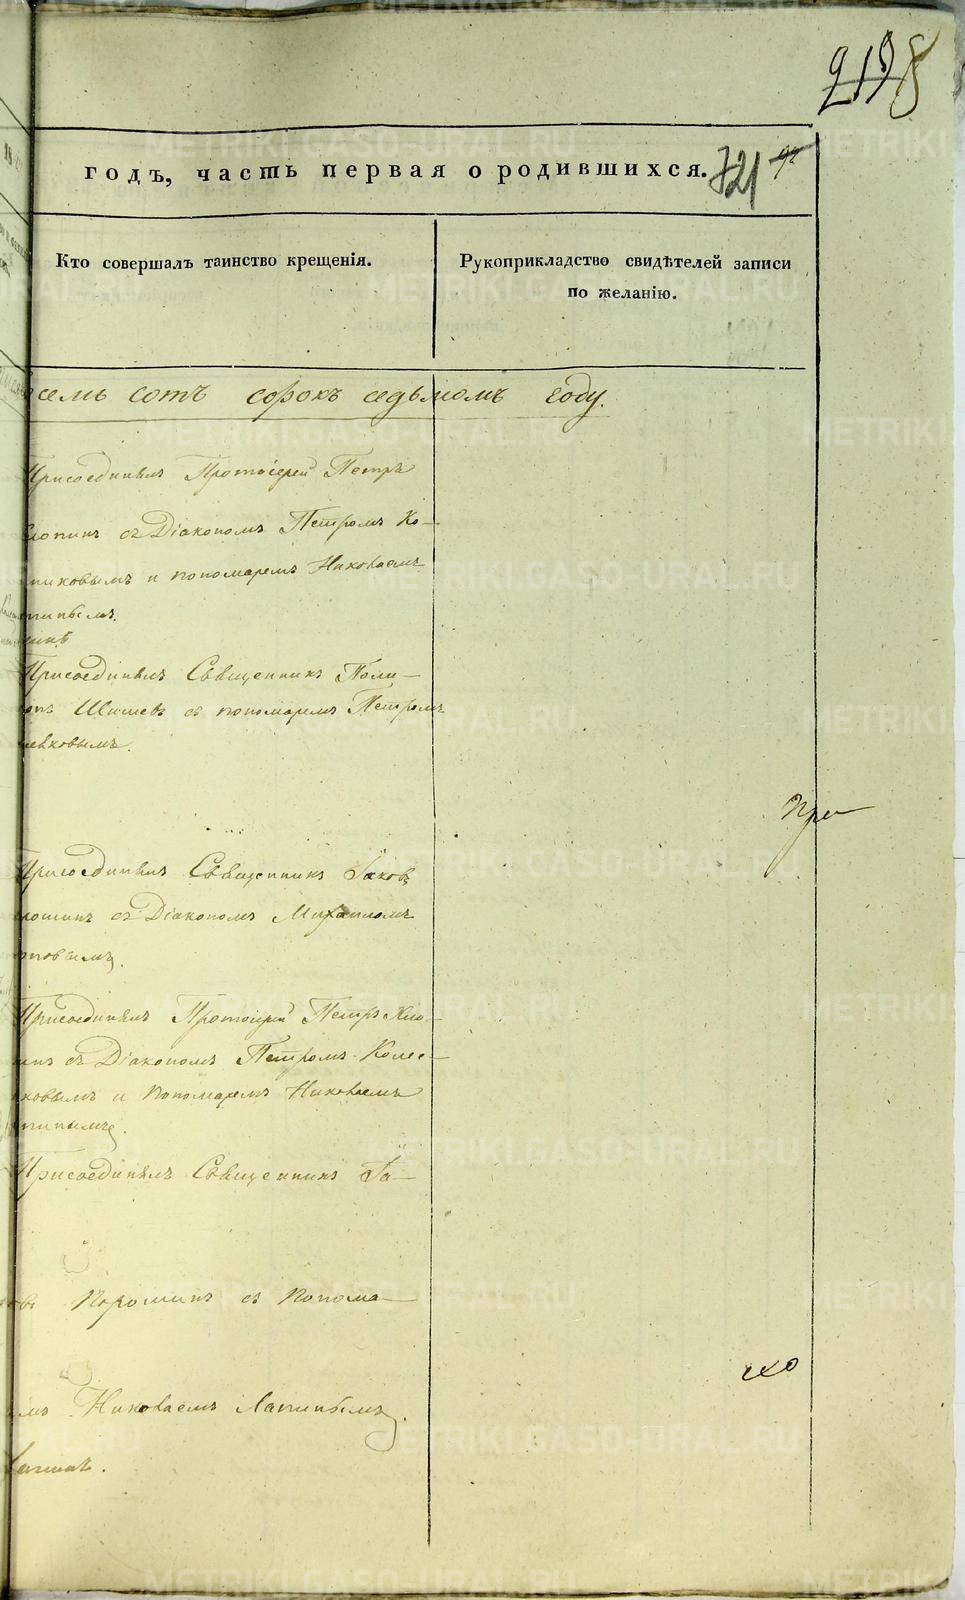 2198
годъ, часть первая о родившихся. 721
Кто совершалъ таинство крещенія.
Рукоприкладство свидѣтелей записи
по желанію.
семь сотъ сорокъ седьмомъ году.
Присоединялъ Протоіерей Петръ
съ Діакономъ Петромъ Ко-
никовымъ и пономаремъ Николаемъ
Присоединялъ Священникъ Поли-
Шишевъ съ пономаремъ Петромъ
левковымъ.
Присоединялъ Священникъ Іаковъ
съ Діакономъ Михаиломъ
поповымъ.
Присоединялъ Протоіерей Петръ Кло-
съ Діакономъ Петромъ Колес-
ковымъ и Пономаремъ Николаемъ
Присоединялъ Священникъ Іа-
съ Понома-
Николаемъ Лапинымъ.
METRIKI.GASO-URAL.RU